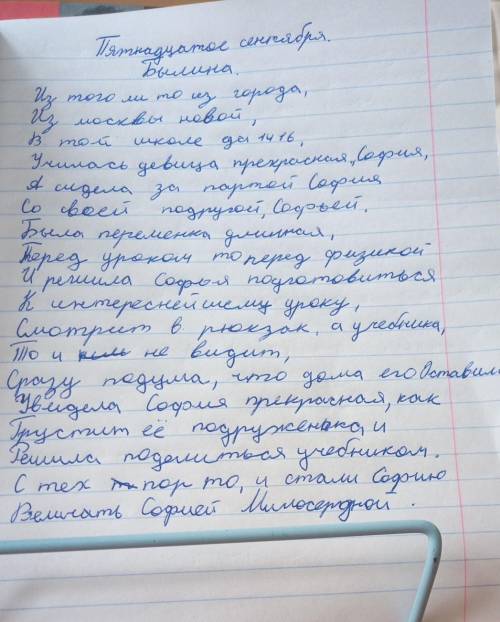 Пятнадцатое сентября.
Былина.
Из того ли то из города,
Из москвы новой,
В той школе да 1416,
Училась девица прекрасная, София,
А сидела за партой София
Со своей подругой, Софьей.
Была переменка длинная,
Перед уроком то перед физикой
И решила Софья подготовиться
К интереснейшему уроку,
Смотрит в рюкзак, а учебника,
То и не видит,
Сразу подума, что дома его Оставила
Увидела София прекрасная, как
Грустит её подруженька, и
Решила поделиться учебником.
С тех пор то, и стали Софию
Величать Софией Милосердной I.